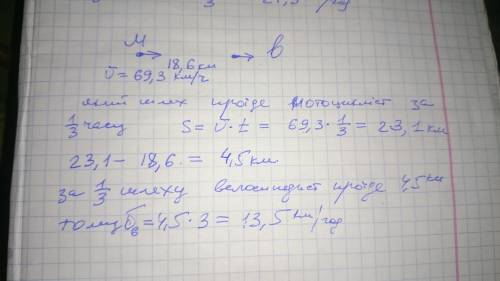 3 21,3 /год
М 18,6 км в
v = 69,3 км/г
який шлях проїде мотоцикліст за
1/3 часу S = v · t = 69,3 · 1/3 = 23,1 км
23,1 – 18,6 = 4,5 км
за 1/3 шляху велосипедист проїде 4,5 км
тому vв = 4,5 · 3 = 13,5 км/год